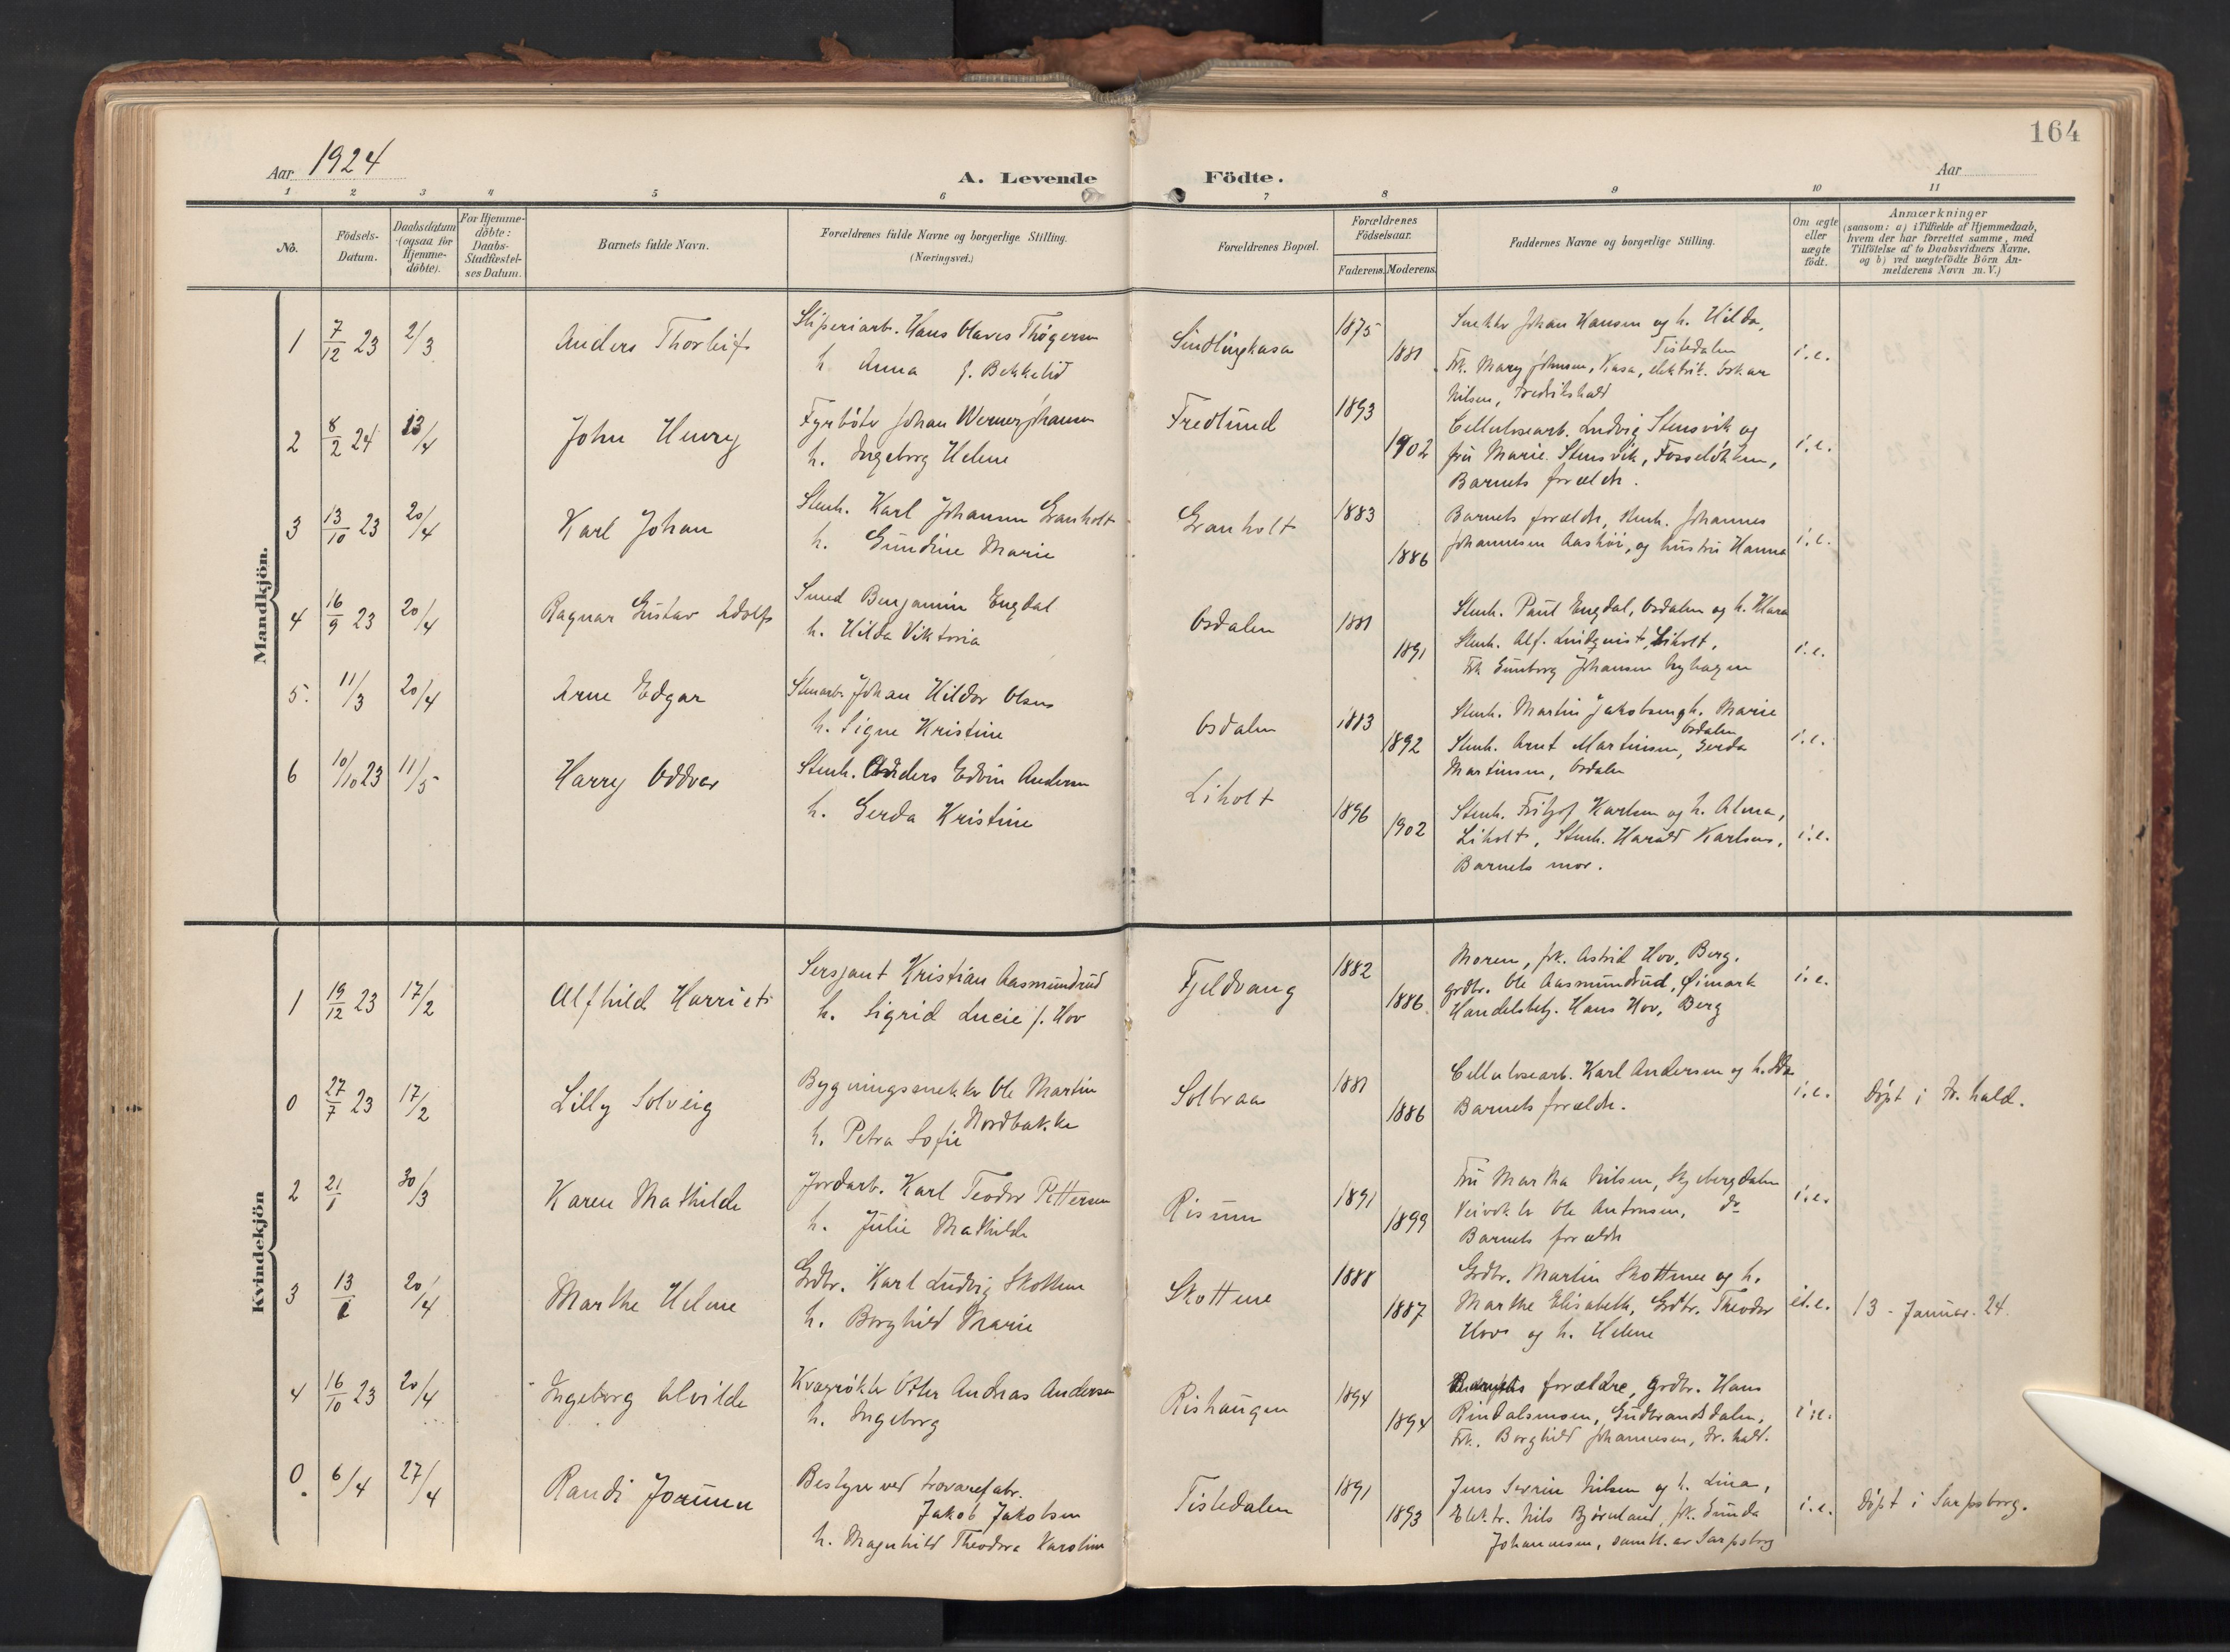 164
Aar 1924
A. Levende Födte.
Aar
1 2 3 4 5 6 7 8 9 10 11
No.
Födsels-Datum.
Daabsdatum (ogsaa for Hjemme-döbte).
For Hjemme-döbte: Daabs-Stadfæstel-ses Datum.
Barnets fulde Navn.
Forældrenes fulde Navne og borgerlige Stilling. (Næringsvei.)
Forældrenes Bopæl.
Forældrenes Födselsaar.
Faderens. Moderens.
Faddernes Navne og borgerlige Stilling.
Om ægte eller uægte födt.
Anmærkninger
(saasom: a) i Tilfælde af Hjemmedaab, hvem der har forrettet samme, med Tilföielse af to Daabsvidners Navne. og b) ved uægtefödte Börn An-melderens Navn m. V.)
Mandkjön.
1 7/12 23 2/3 Anders Thorleif Sliperiarb. Hans Olaves Thøgersen
h. Anna f. Bekkelid
Sindlingkasa 1875 1881
Snekker Johan Hansen og h. Hilda,
Tistedalen
Frk. Mary Johnsen, Kasa, elektrik. Oskar
Nilsen, Fredrikshald
i.e.
2 8/2 24 13/4 John Henry Fyrbøter Johan Werner Johansen
h. Ingeborg Helene
Fredlund 1893 1902
Cellulosearb. Ludvig Stensvik og
fru Marie Stensvik, Fosseløkken,
Barnets forældre.
i.e.
3 13/10 23 20/4 Karl Johan Stenh. Karl Johansen Granholt
h. Gundine Marie
Granholt 1883 1886
Barnets forældre, stenh. Johannes
Johannesen Aashøi, og hustru Hanna
i.e.
4 16/9 23 20/4 Ragnar Gustav Adolf Smed Benjamin Engdal
h. Hilda Viktoria
Osdalen 1881 1891
Stenh. Paul Engdal, Osdalen og h. Klara
Stenh. Alf. Lindquist, Liholt,
Frk Gunborg Johansen Nyhagen
i.e.
5. 11/3 20/4 Arne Edgar Stenarb. Johan Hildor Olsen
h. Signe Kristine
Osdalen 1883 1892
Stenh. Martin Jakobsen og h. Marie
Osdalen
Stenh. Arnt Martinsen, Gerda
Martinsen, Osdalen
i.e.
6 10/10 23 11/5 Harry Oddvar Stenh. Anders Edvin Andersen
h. Gerda Kristine
Liholt 1896 1902
Stenh. Fritjof Karlsen og h. Alma,
Liholt, Stenh. Harald Karlsen,
Barnets mor.
i.e.
Kvindekjön
1 19/12 23 17/2 Alfhild Harriet Sersjant Kristian Aasmundrud
h. Sigrid Lucie f. Hov
Fjeldvang 1882 1886
Moren, frk. Astrid Hov, Berg.
grdbr. Ole Aasmundrud, Øimark
Handelsbetj. Hans Hov, Berg
i.e.
0 27/7 23 17/2 Lilly Solveig Bygningssnekker Ole Martin
Nordbakke
h. Petra Sofie
Solbraa 1881 1886
Cellulosearb. Karl Andersen og h. Ida
Barnets forældre.
i.e. Døpt i Fr.hald.
2 21/1 30/3 Karen Mathilde Jordarb. Karl Teodor Pettersen
h. Julie Mathilde
Risum 1891 1899
Fru Martha Nilsen, Skjebergdalen
Veivokter Ole Antonsen, do
Barnets forældre
i.e.
3 13/1 20/4 Marthe Helene Grdbr. Karl Ludvig Skottene
h. Borghild Marie
Skottene 1888 1887
Grdbr. Martin Skottene og h.
Marthe Elisabeth, Grdbr. Theodor
Hov og h. Helene
i.e. 13 - Januar. 24.
4 16/10 23 20/4 Ingeborg Alvilde Kvægrøkter Otter Andreas Andersen
h. Ingeborg
Rishaugen 1894 1894
Barnets forældre, grdbr. Hans
Rindalsmoen, Gudbrandsdalen,
Frk. Borghild Johannesen, Fr.hald.
i.e.
0. 6/4 27/4 Randi Jorunn Bestyrer ved trevarefabr.
Jakob Jakobsen
h. Magnhild Theodora Karoline
Tistedalen 1891 1893
Jens Severin Nilsen og h. Lina,
Elektr. Nils Bjørnland, frk. Gunda
Johannesen, samtl. av Sarpsborg
i.e. Døpt i Sarpsborg.